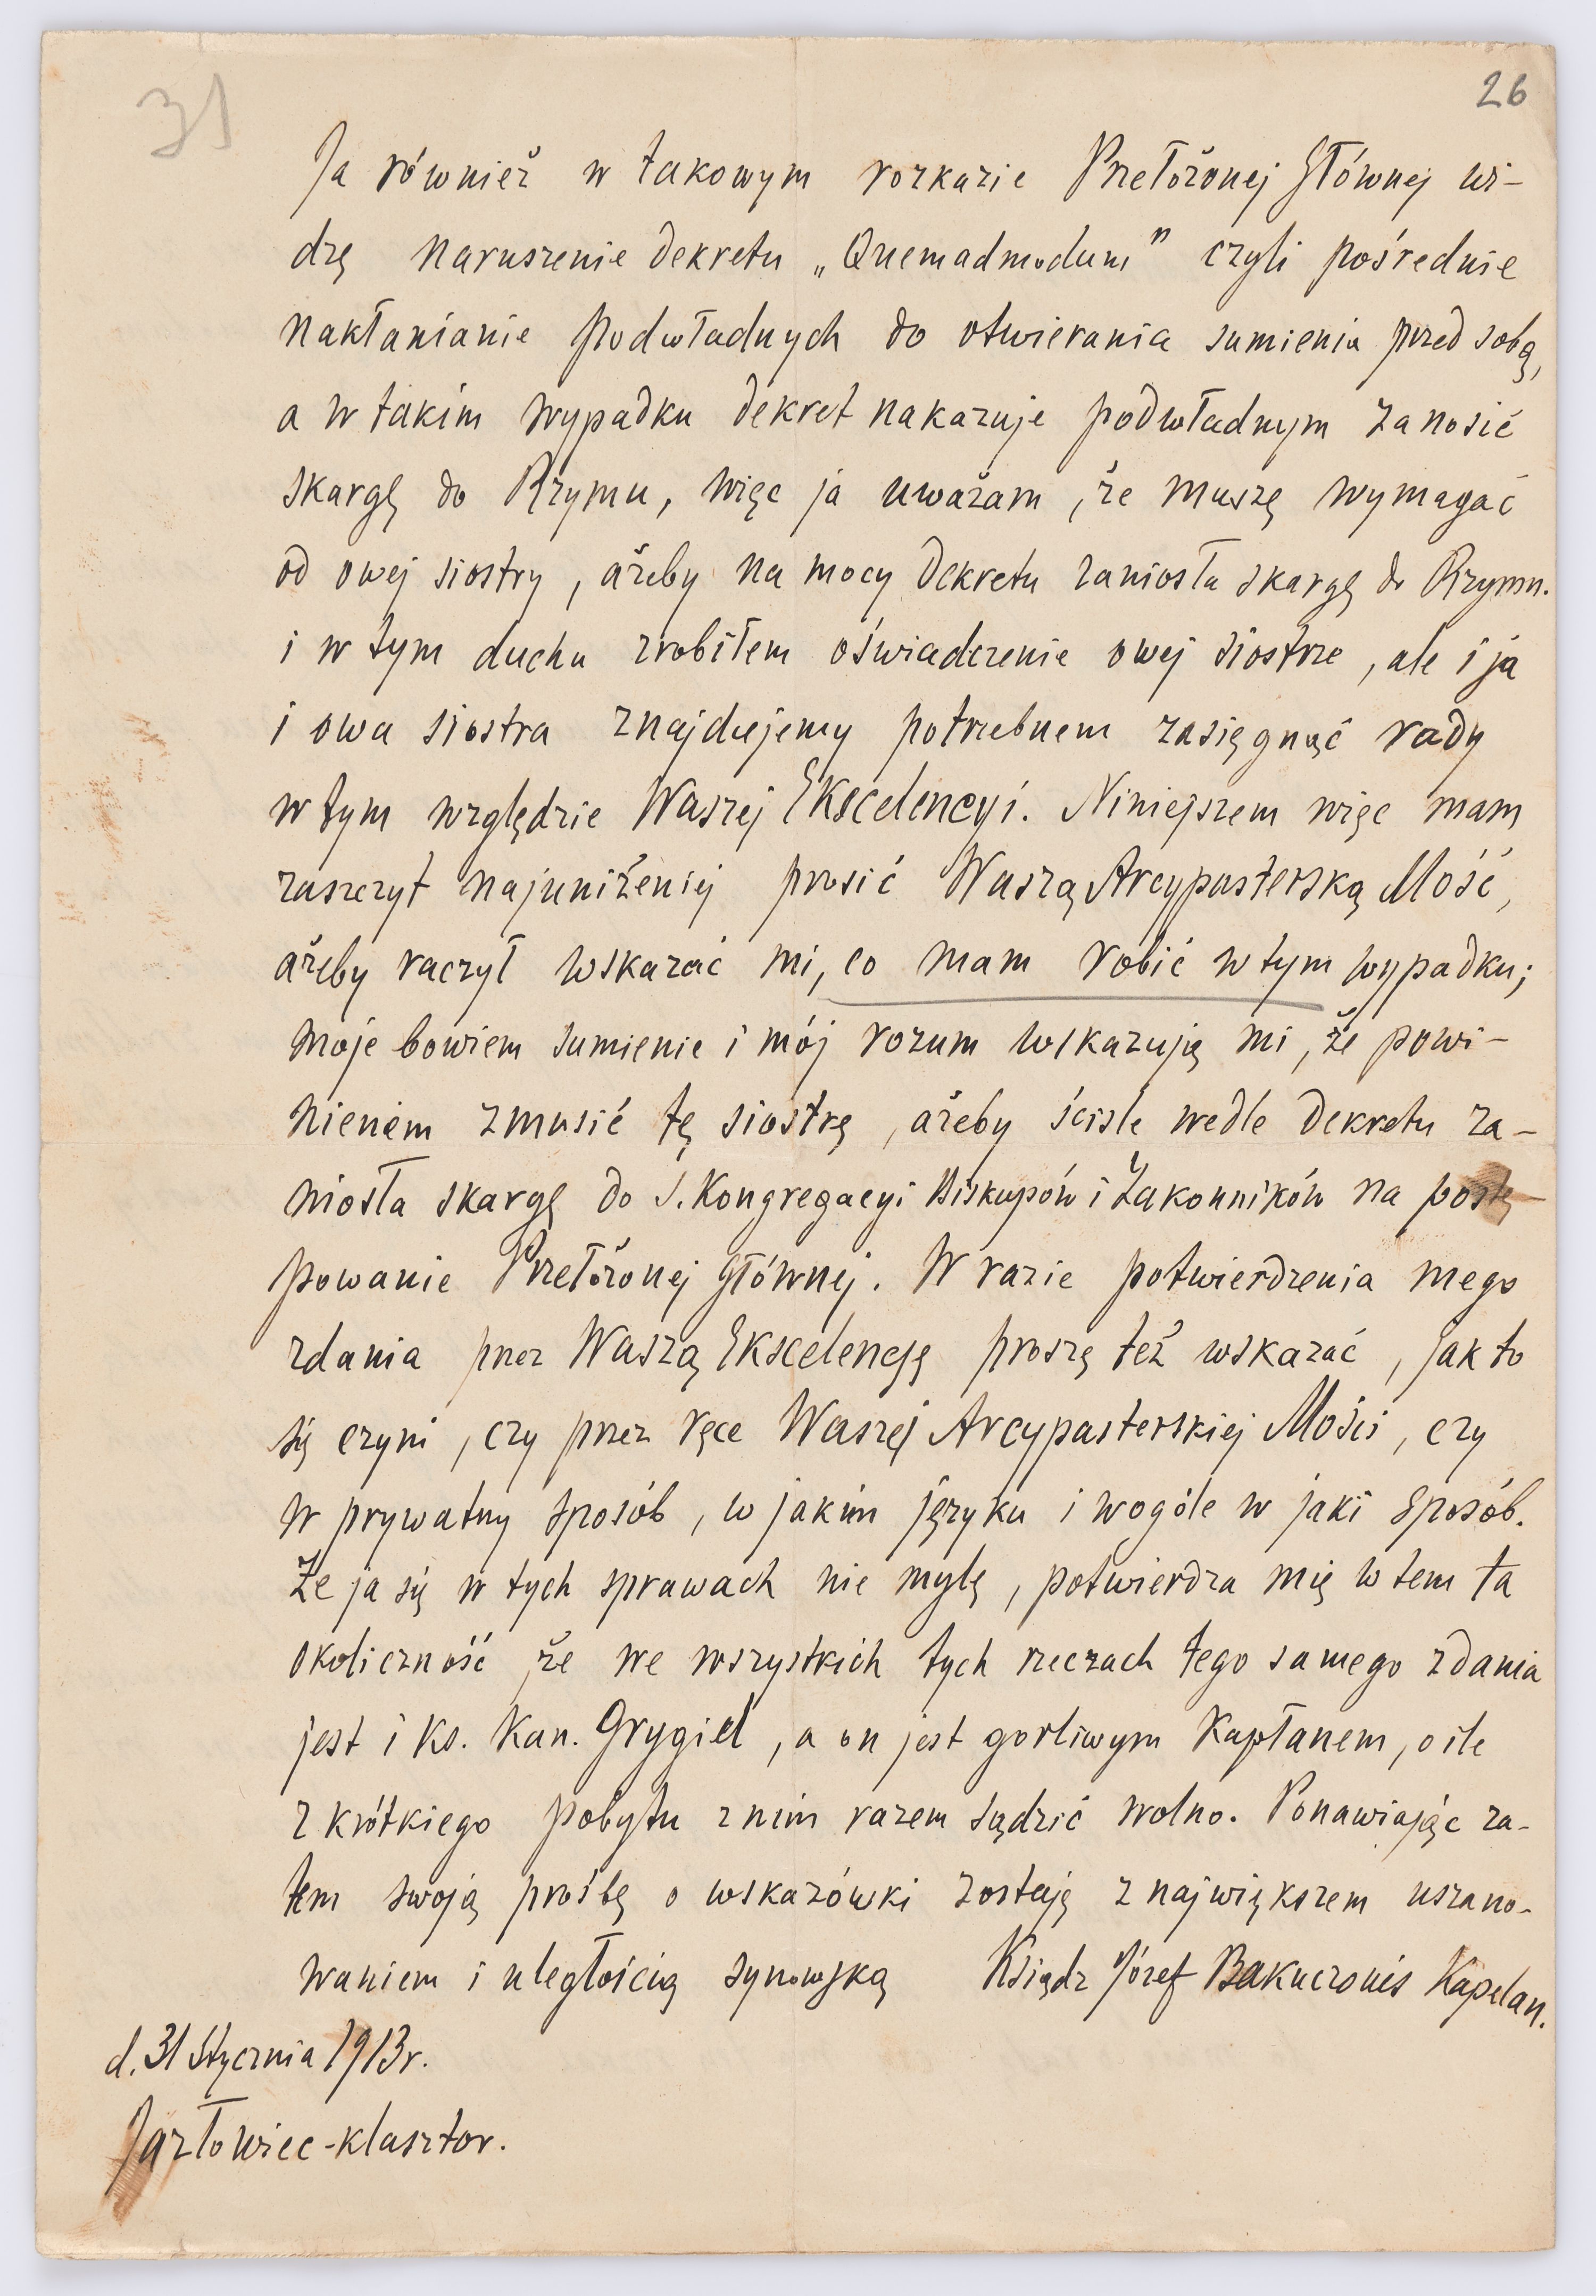 31
26
Ja również w takowym rozkazie Przełożonej Głównej wi-
dzę naruszenie dekretu „Quemadmodum" czyli pośrednie
nakłanianie podwładnych do otwierania sumienia przed sobą,
a w takim wypadku dekret nakazuje podwładnym zanosić
skargę do Rzymu, więc ja uważam, że muszę wymagać
od owej siostry, ażeby na mocy Dekretu zaniosła skargę do Rzymu.
i w tym duchu zrobiłem oświadczenie owej siostrze, ale i ja
i owa siostra znajdujemy potrzebnem zasięgnąć rady
w tym względzie Waszej Ekscelencyi. Niniejszem więc mam
zaszczyt najuniżeniej prosić Waszą Arcypasterską Mość,
ażeby raczył wskazać mi, co mam robić w tym wypadku;
moje bowiem sumienie i mój rozum wskazują mi, że powi-
nienem zmusić tę siostrę, ażeby ściśle wedle Dekretu za-
niosła skargę do S. Kongregacyi Biskupów i Zakonników na postę-
powanie Przełożonej głównej. W razie potwierdzenia mego
zdania przez Waszą Ekscelencję proszę też wskazać, jak to
się czyni, czy przez ręce Waszej Arcypasterskiej Mości, czy
w prywatny sposób, w jakim języku i wogóle w jaki sposób.
Że ja się w tych sprawach nie mylę, potwierdza mię w tem ta
okoliczność, że we wszystkich tych rzeczach tego samego zdania
jest i Ks. Kan. Grygiel, a on jest gorliwym Kapłanem, o ile
z krótkiego pobytu z nim razem sądzić wolno. Ponawiając za-
tem swoją prośbę o wskazówki zostaję z największem uszano-
waniem i uległością synowską Ksiądz Józef Bakuczonis Kapelan.
d. 31 Stycznia 1913 r.
Jazłowiec-klasztor.